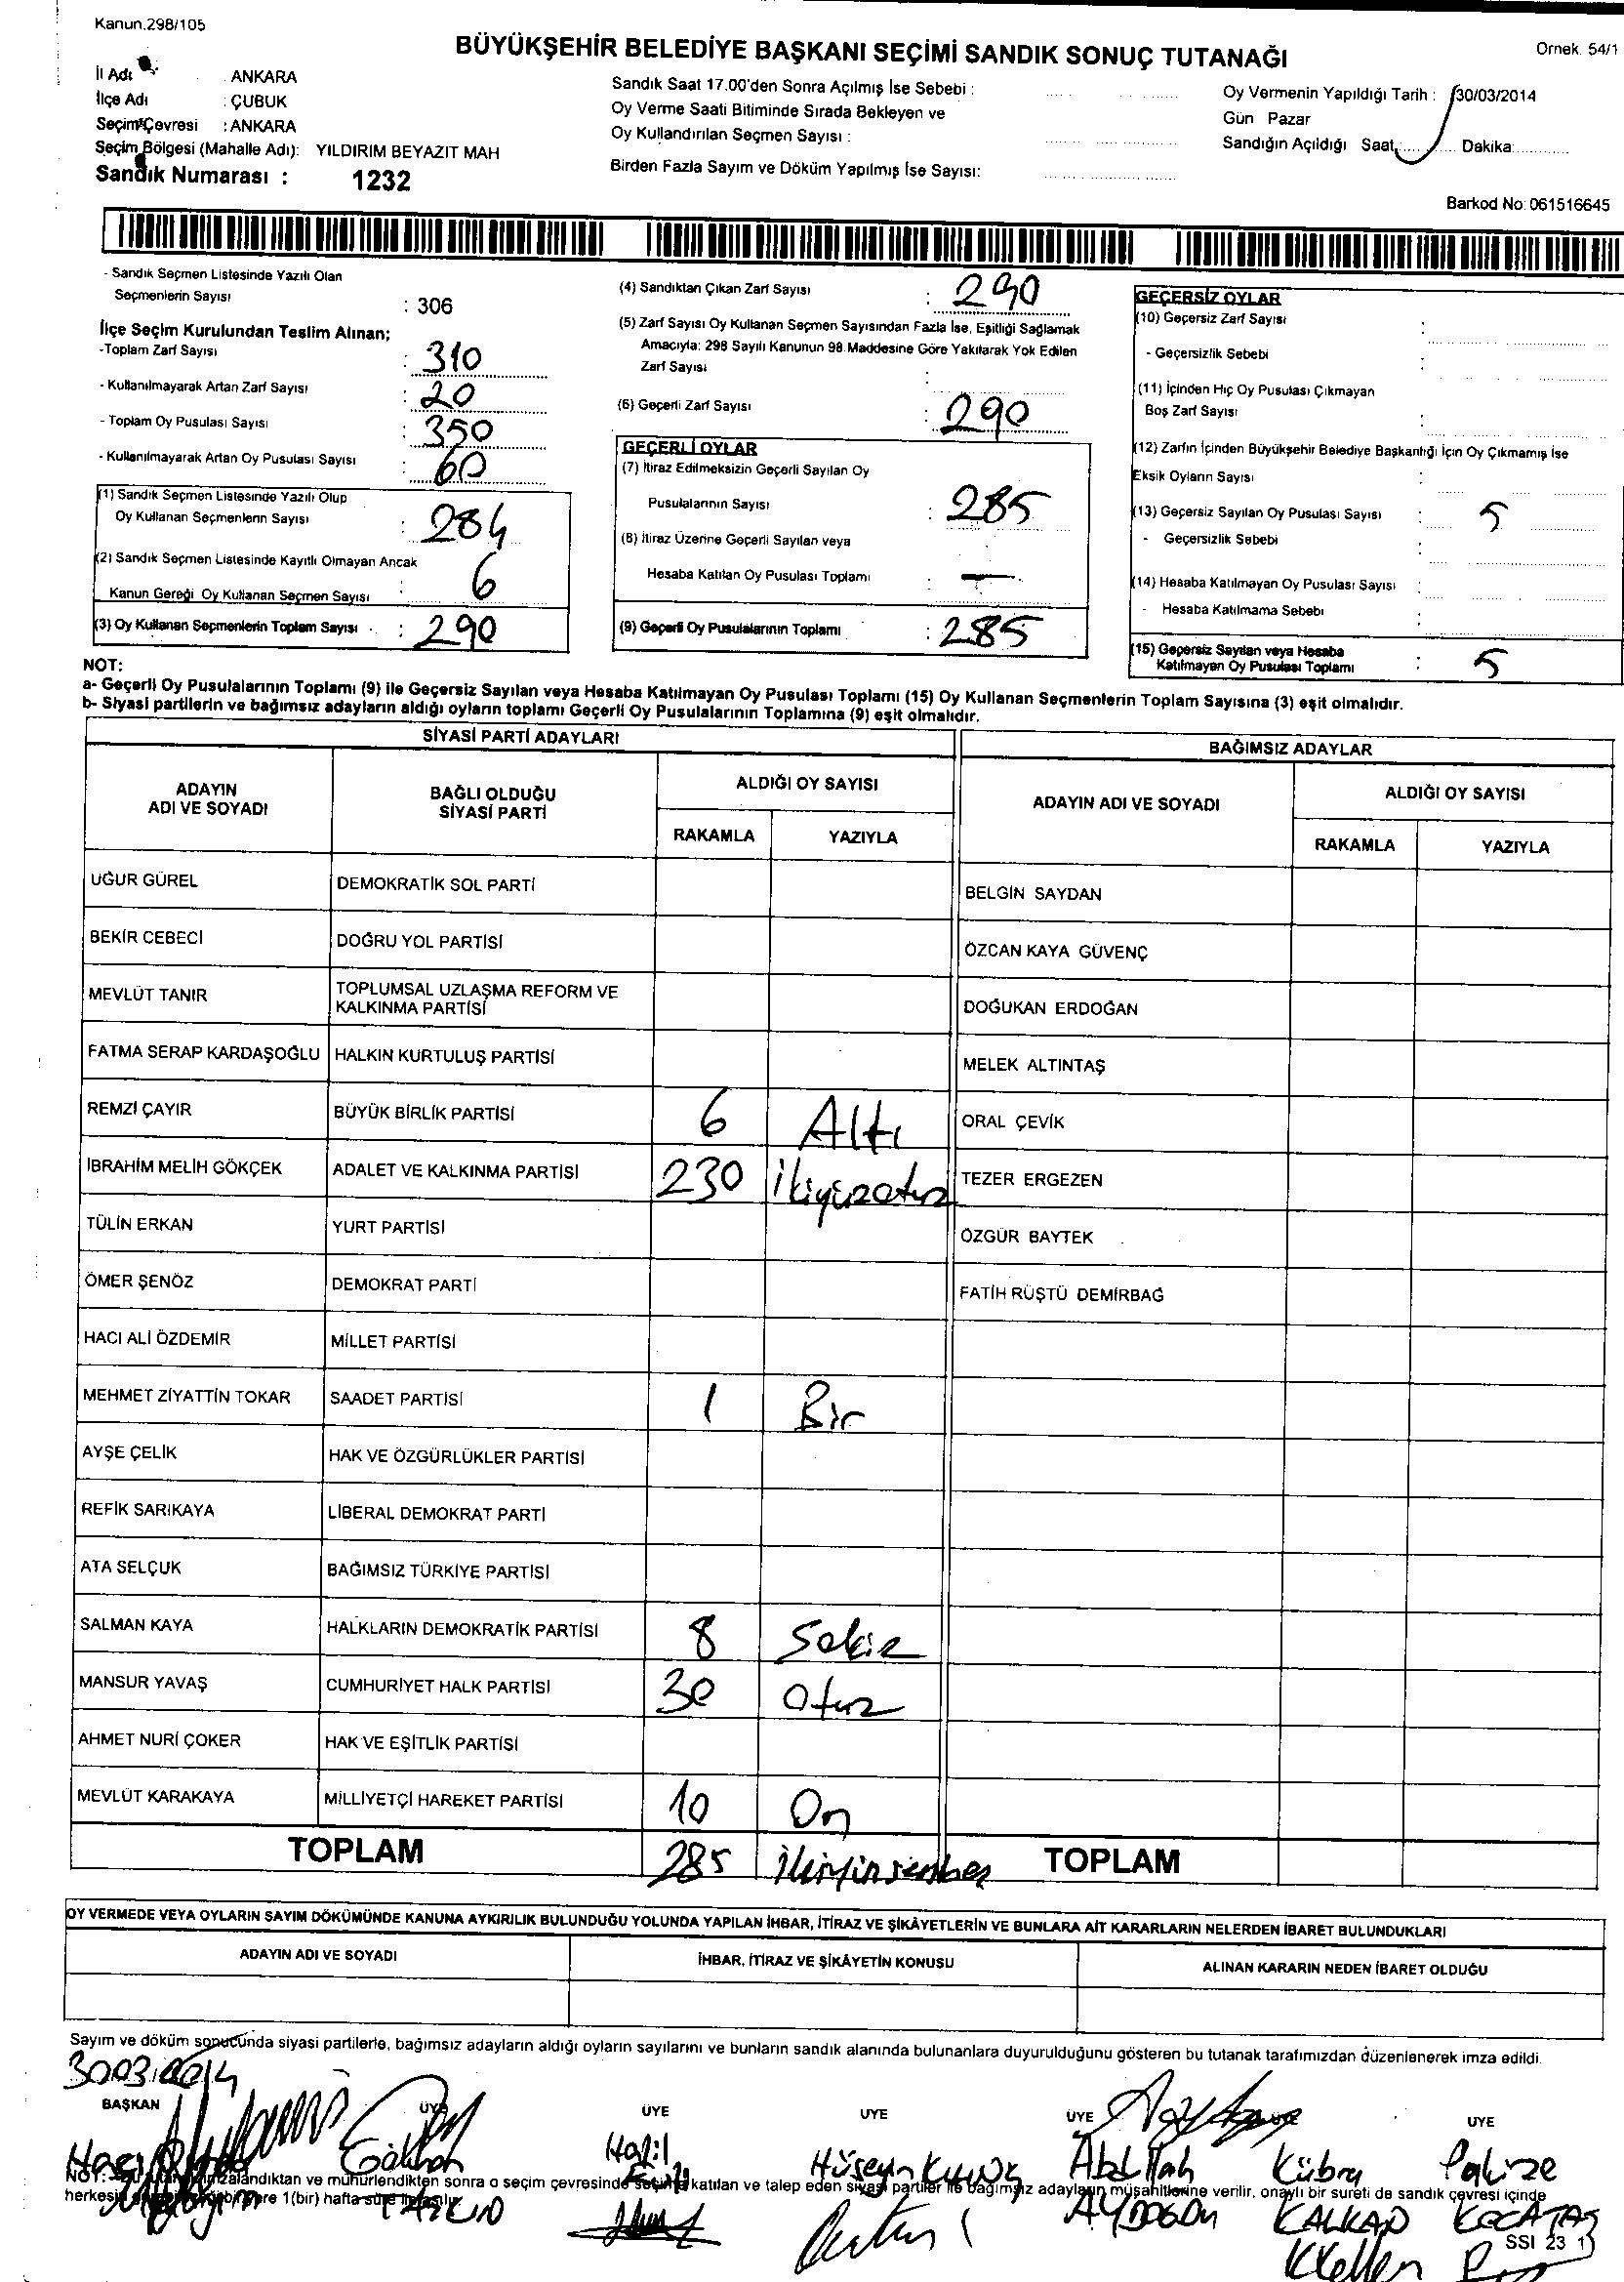 Kanun.298/105
BÜYÜKŞEHİR BELEDİYE BAŞKANI SEÇİMİ SANDIK SONUÇ TUTANAĞI
Ornek. 54/1
İl Adı : ANKARA
İlçe Adı : ÇUBUK
Seçim Çevresi : ANKARA
Seçim Bölgesi (Mahalle Adı): YILDIRIM BEYAZIT MAH
Sandık Numarası : 1232
Sandık Saat 17.00'den Sonra Açılmış İse Sebebi :
Oy Verme Saati Bitiminde Sırada Bekleyen ve
Oy Kullandırılan Seçmen Sayısı :
Birden Fazla Sayım ve Döküm Yapılmış İse Sayısı:
Oy Vermenin Yapıldığı Tarih : 30/03/2014
Gün Pazar
Sandığın Açıldığı Saat:........... Dakika:............
Barkod No: 061516645
- Sandık Seçmen Listesinde Yazılı Olan
Seçmenlerin Sayısı : 306
İlçe Seçim Kurulundan Teslim Alınan;
-Toplam Zarf Sayısı : 310
- Kullanılmayarak Artan Zarf Sayısı : 20
- Toplam Oy Pusulası Sayısı : 350
- Kullanılmayarak Artan Oy Pusulası Sayısı : 60
(1) Sandık Seçmen Listesinde Yazılı Olup
Oy Kullanan Seçmenlerin Sayısı : 284
(2) Sandık Seçmen Listesinde Kayıtlı Olmayan Ancak
Kanun Gereği Oy Kullanan Seçmen Sayısı : 6
(3) Oy Kullanan Seçmenlerin Toplam Sayısı : 290
(4) Sandıktan Çıkan Zarf Sayısı : 290
(5) Zarf Sayısı Oy Kullanan Seçmen Sayısından Fazla İse, Eşitliği Sağlamak
Amacıyla: 298 Sayılı Kanunun 98.Maddesine Göre Yakılarak Yok Edilen
Zarf Sayısı :
(6) Geçerli Zarf Sayısı : 290
GEÇERLİ OYLAR
(7) İtiraz Edilmeksizin Geçerli Sayılan Oy
Pusulalarının Sayısı : 285
(8) İtiraz Üzerine Geçerli Sayılan veya
Hesaba Katılan Oy Pusulası Toplamı : —
(9) Geçerli Oy Pusulalarının Toplamı : 285
GEÇERSİZ OYLAR
(10) Geçersiz Zarf Sayısı :
- Geçersizlik Sebebi :
(11) İçinden Hiç Oy Pusulası Çıkmayan
Boş Zarf Sayısı :
(12) Zarfın İçinden Büyükşehir Belediye Başkanlığı İçin Oy Çıkmamış İse
Eksik Oyların Sayısı :
(13) Geçersiz Sayılan Oy Pusulası Sayısı : 5
- Geçersizlik Sebebi :
(14) Hesaba Katılmayan Oy Pusulası Sayısı :
- Hesaba Katılmama Sebebi :
(15) Geçersiz Sayılan veya Hesaba
Katılmayan Oy Pusulası Toplamı : 5
NOT:
a- Geçerli Oy Pusulalarının Toplamı (9) ile Geçersiz Sayılan veya Hesaba Katılmayan Oy Pusulası Toplamı (15) Oy Kullanan Seçmenlerin Toplam Sayısına (3) eşit olmalıdır.
b- Siyasi partilerin ve bağımsız adayların aldığı oyların toplamı Geçerli Oy Pusulalarının Toplamına (9) eşit olmalıdır.
SİYASİ PARTİ ADAYLARI
ADAYIN ADI VE SOYADI BAĞLI OLDUĞU SİYASİ PARTİ ALDIĞI OY SAYISI
RAKAMLA YAZIYLA
UĞUR GÜREL DEMOKRATİK SOL PARTİ
BEKİR CEBECİ DOĞRU YOL PARTİSİ
MEVLÜT TANIR TOPLUMSAL UZLAŞMA REFORM VE KALKINMA PARTİSİ
FATMA SERAP KARDAŞOĞLU HALKIN KURTULUŞ PARTİSİ
REMZİ ÇAYIR BÜYÜK BİRLİK PARTİSİ 6 Altı
İBRAHİM MELİH GÖKÇEK ADALET VE KALKINMA PARTİSİ 230 İkiyüzotuz
TÜLİN ERKAN YURT PARTİSİ
ÖMER ŞENÖZ DEMOKRAT PARTİ
HACI ALİ ÖZDEMİR MİLLET PARTİSİ
MEHMET ZİYATTİN TOKAR SAADET PARTİSİ 1 Bir
AYŞE ÇELİK HAK VE ÖZGÜRLÜKLER PARTİSİ
REFİK SARIKAYA LİBERAL DEMOKRAT PARTİ
ATA SELÇUK BAĞIMSIZ TÜRKİYE PARTİSİ
SALMAN KAYA HALKLARIN DEMOKRATİK PARTİSİ 8 Sekiz
MANSUR YAVAŞ CUMHURİYET HALK PARTİSİ 30 Otuz
AHMET NURİ ÇOKER HAK VE EŞİTLİK PARTİSİ
MEVLÜT KARAKAYA MİLLİYETÇİ HAREKET PARTİSİ 10 On
TOPLAM 285
BAĞIMSIZ ADAYLAR
ADAYIN ADI VE SOYADI ALDIĞI OY SAYISI
RAKAMLA YAZIYLA
BELGİN SAYDAN
ÖZCAN KAYA GÜVENÇ
DOĞUKAN ERDOĞAN
MELEK ALTINTAŞ
ORAL ÇEVİK
TEZER ERGEZEN
ÖZGÜR BAYTEK
FATİH RÜŞTÜ DEMİRBAĞ
TOPLAM
OY VERMEDE VEYA OYLARIN SAYIM DÖKÜMÜNDE KANUNA AYKIRILIK BULUNDUĞU YOLUNDA YAPILAN İHBAR, İTİRAZ VE ŞİKÂYETLERİN VE BUNLARA AİT KARARLARIN NELERDEN İBARET BULUNDUKLARI
ADAYIN ADI VE SOYADI İHBAR, İTİRAZ VE ŞİKÂYETİN KONUSU ALINAN KARARIN NEDEN İBARET OLDUĞU
Sayım ve döküm sonucunda siyasi partilerle, bağımsız adayların aldığı oyların sayılarını ve bunların sandık alanında bulunanlara duyurulduğunu gösteren bu tutanak tarafımızdan düzenlenerek imza edildi.
30.03.2014
BAŞKAN ÜYE ÜYE ÜYE ÜYE ÜYE ÜYE
Gökhan Halil Hüseyin Abdullah Kübra Pakize
NOT: zalandıktan ve mühürlendikten sonra o seçim çevresinde katılan ve talep eden siyasi partiler ile bağımsız adayların müşahitlerine verilir, onaylı bir sureti de sandık çevresi içinde
herkesin 1(bir) hafta süre
AYDOĞDU KALKAN KOCATAŞ
SSI 23 1